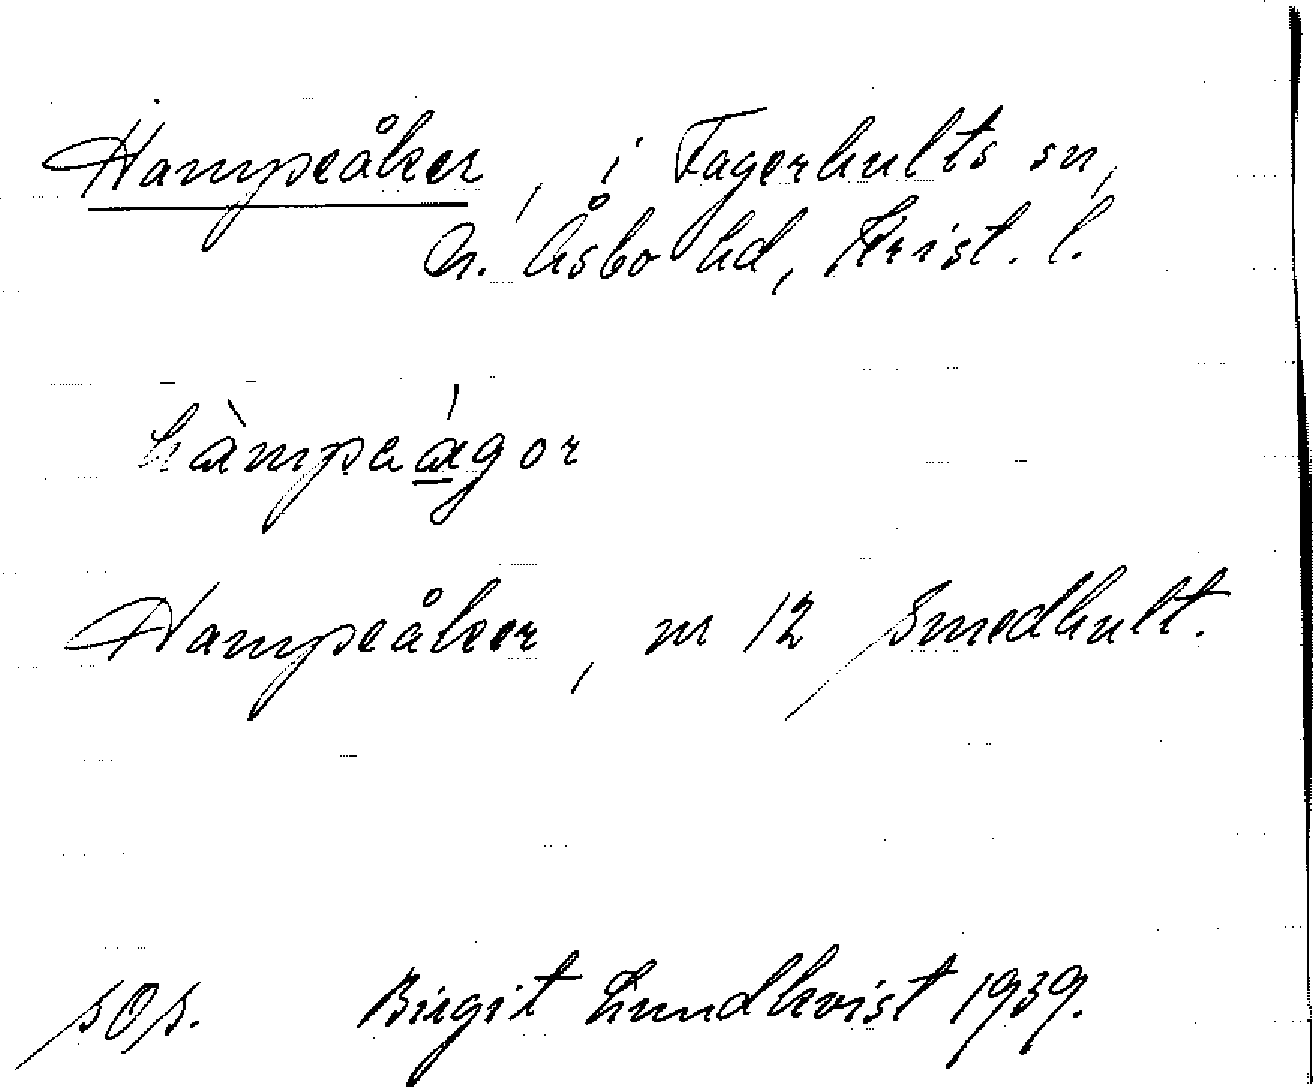 Hampeåker, i Fagerhults sn,
N. Åsbo hd, Krist. l.
hàmpeágor
Hampeåker, nr 12 Smedhult.
sOs. Birgit Lundkvist 1939.